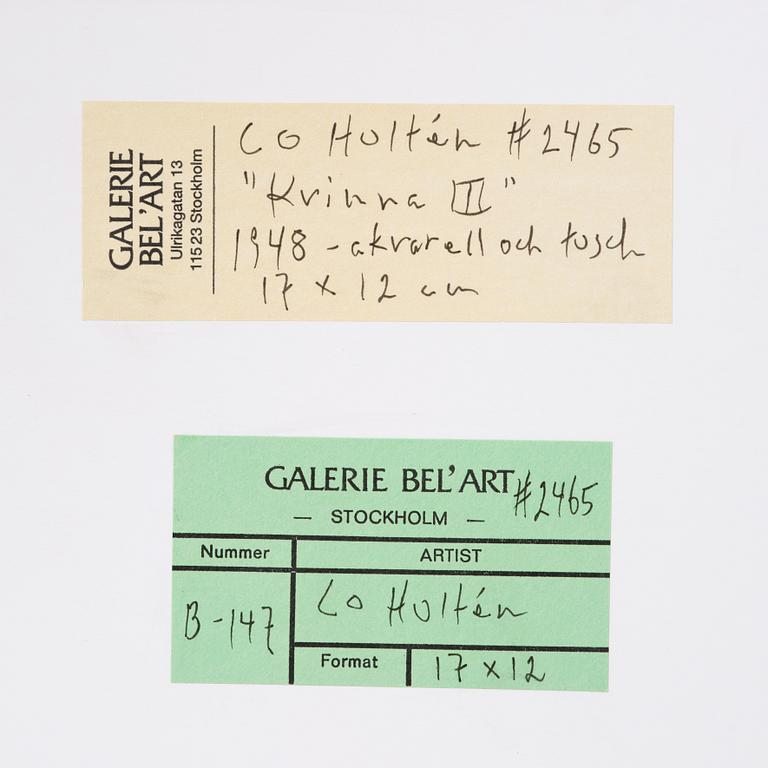 GALERIE
BEL'ART
Ulrikagatan 13
115 23 Stockholm
CO Hultén #2465
"Kvinna III"
1948 - akvarell och tusch
17 x 12 cm
GALERIE BEL'ART #2465
— STOCKHOLM —
Nummer
ARTIST
B-147
CO Hultén
Format
17 x 12